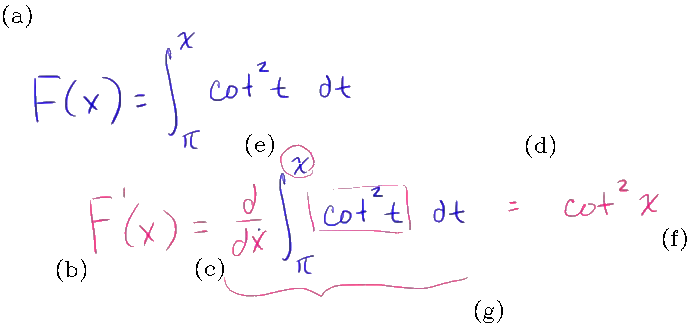 (a)
F(x) = ∫_π^x cot² t dt
(e) (d)
F'(x) = d/dx ∫_π^x cot² t dt = cot² x
(b) (c) (f)
(g)